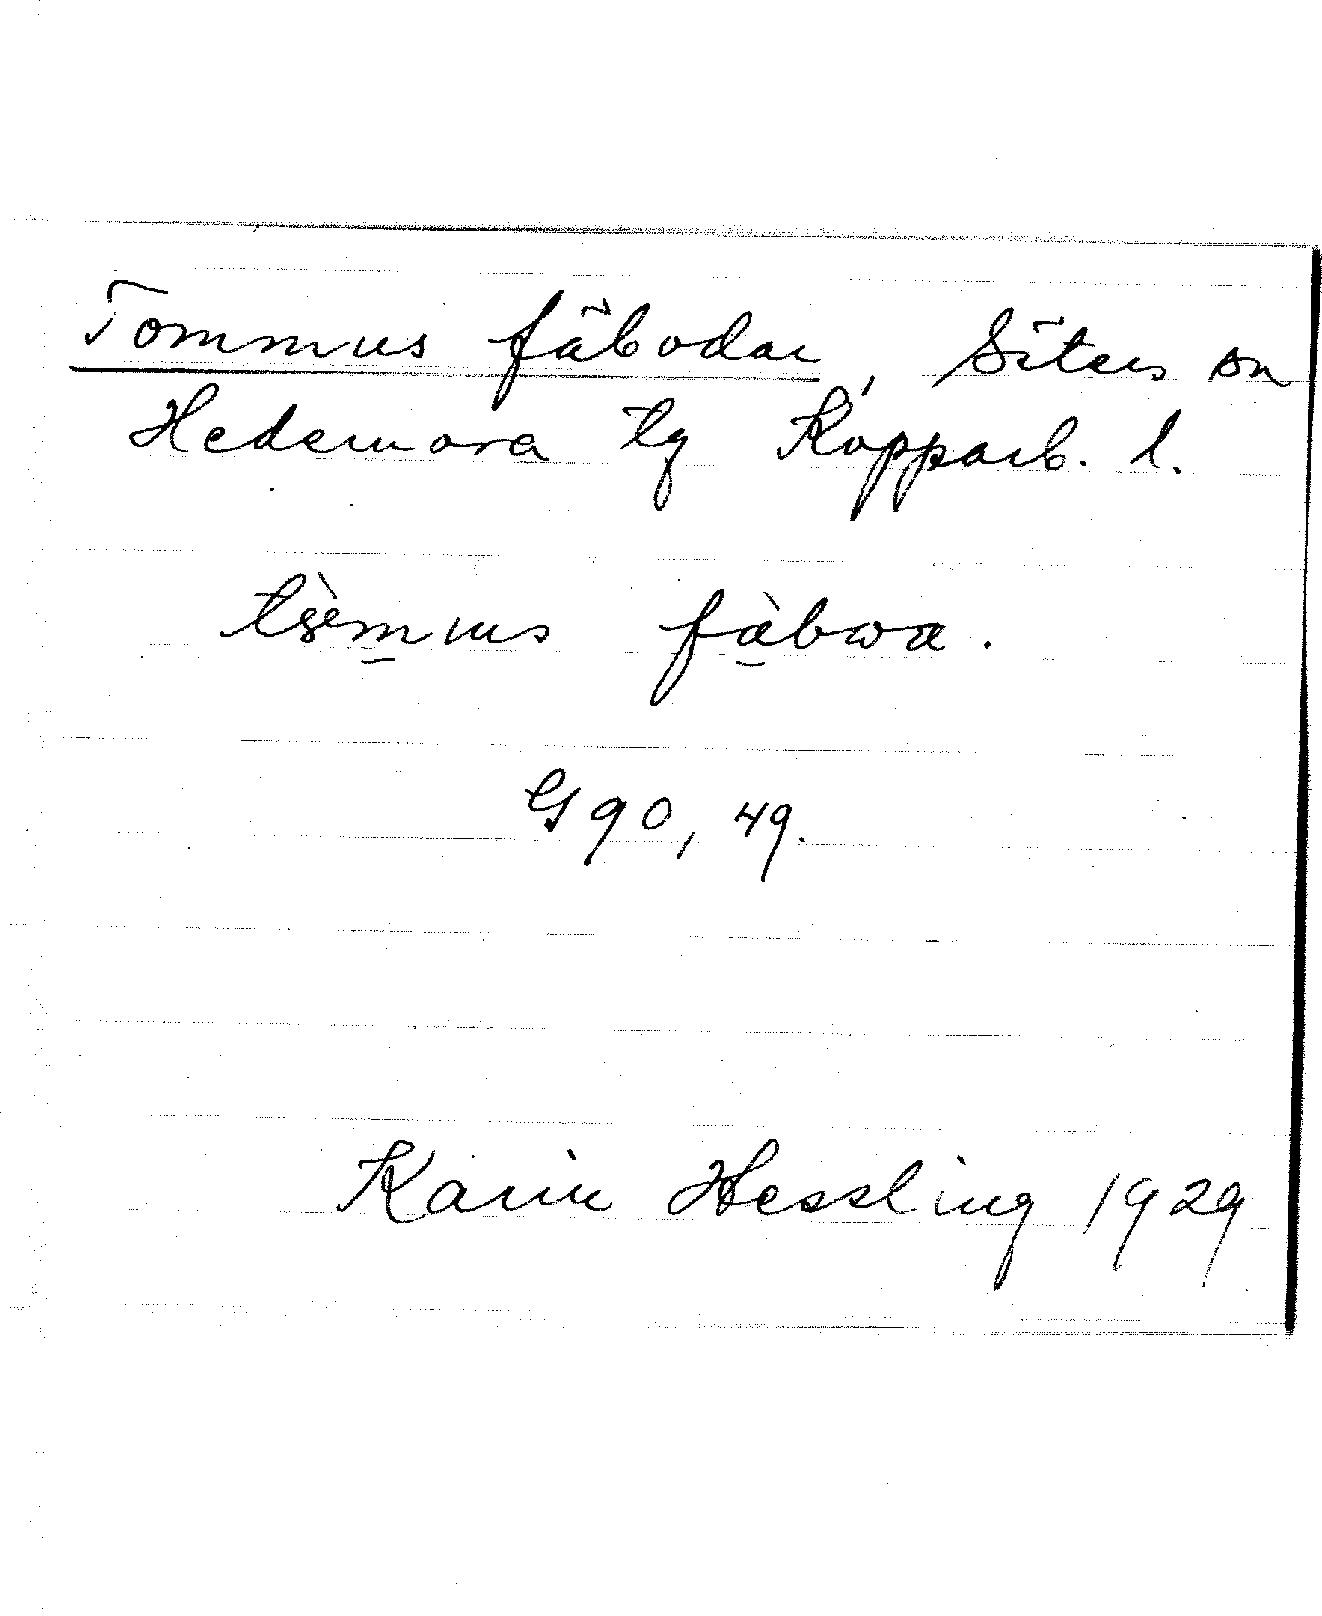 Tommus fäbodar, Säters sn
Hedemora tg Kopparb. l.
fàbwa.
G 90, 49.
Karin Hessling 1929